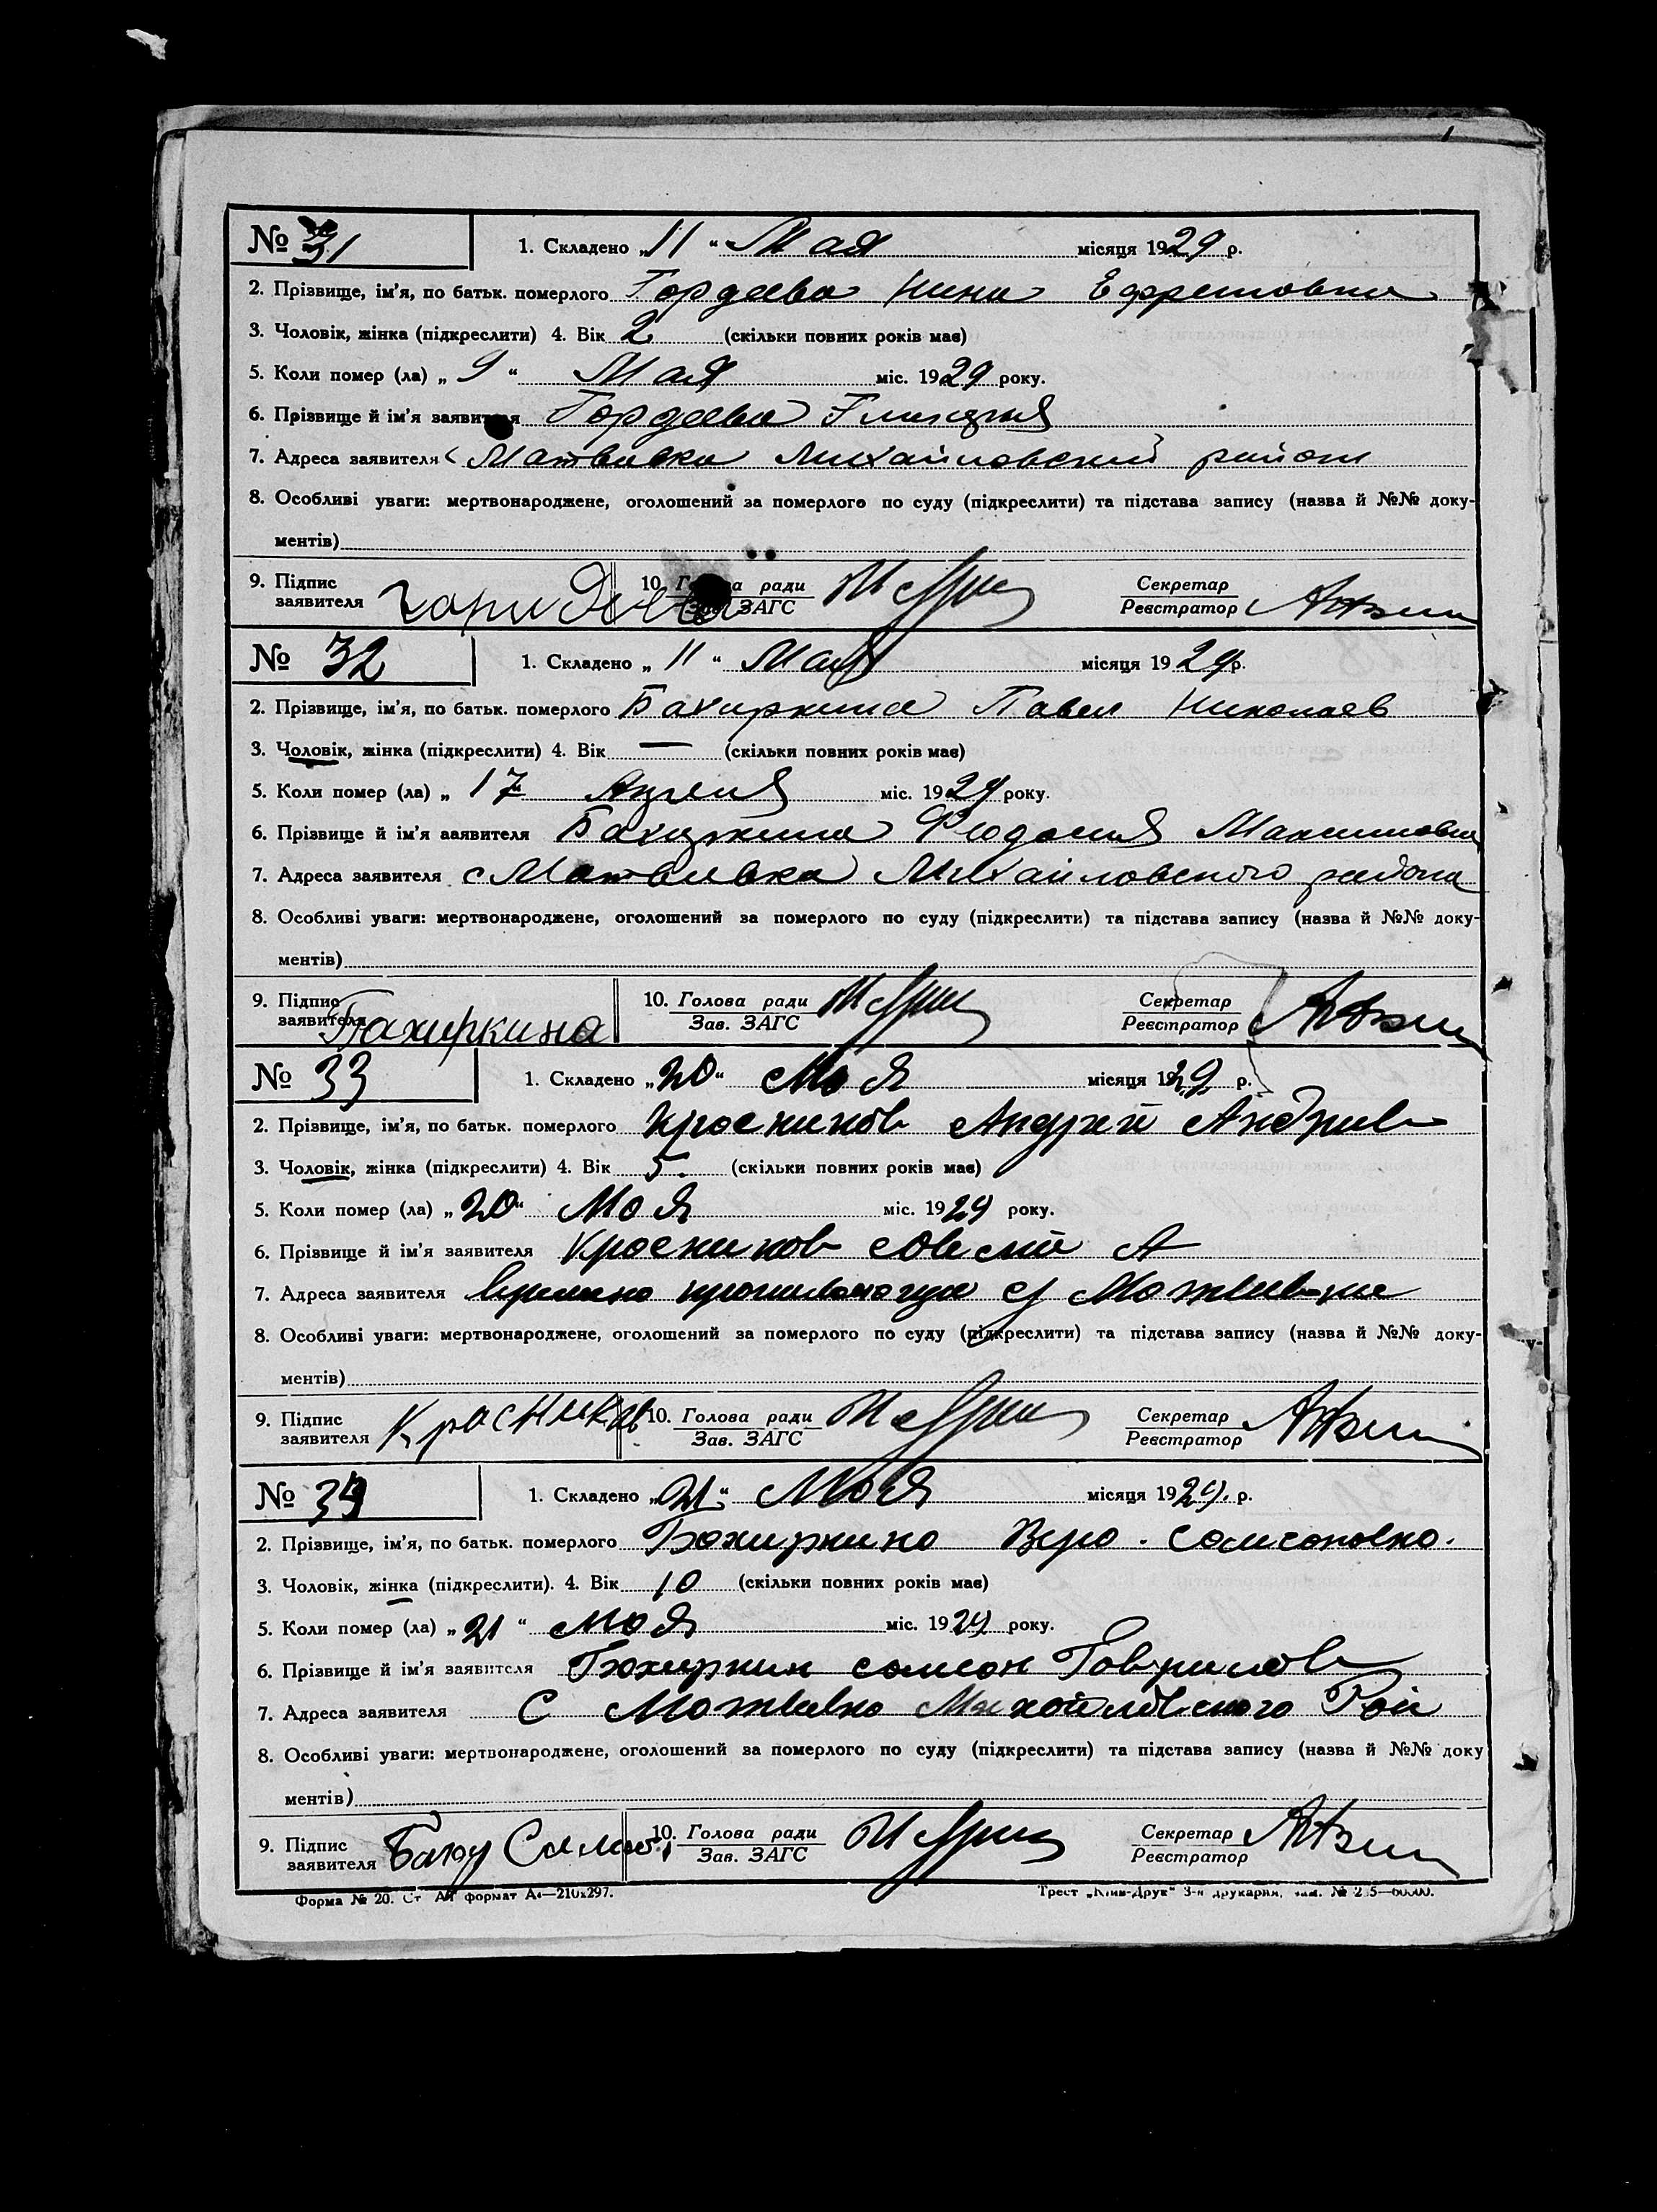 № 31 1. Складено „11“ Мая місяця 1929 р.
2. Прізвище, ім'я, по батьк. померлого Гордеева Нина Ефремовна
3. Чоловік, жінка (підкреслити) 4. Вік 2 (скільки повних років має)
5. Коли помер (ла) „9“ Мая міс. 1929 року.
6. Прізвище й ім'я заявителя Гордеева
7. Адреса заявителя с Матвивка Михайловский район
8. Особливі уваги: мертвонароджене, оголошений за померлого по суду (підкреслити) та підстава запису (назва й №№ доку-
ментів)
9. Підпис заявителя 10. Голова ради Зав. ЗАГС Секретар Реєстратор
№ 32 1. Складено „11“ Мая місяця 1929 р.
2. Прізвище, ім'я, по батьк. померлого Бахиркина Павел Николаев
3. Чоловік, жінка (підкреслити) 4. Вік — (скільки повних років має)
5. Коли помер (ла) „17 Апреля міс. 1929 року.
6. Прізвище й ім'я заявителя Бахиркина Федосия Максимовна
7. Адреса заявителя с Матвивка Михайловского района
8. Особливі уваги: мертвонароджене, оголошений за померлого по суду (підкреслити) та підстава запису (назва й №№ доку-
ментів)
9. Підпис заявителя Бахиркина 10. Голова ради Зав. ЗАГС Секретар Реєстратор
№ 33 1. Складено „20“ Мая місяця 1929 р.
2. Прізвище, ім'я, по батьк. померлого Красников Андрей Андриев
3. Чоловік, жінка (підкреслити) 4. Вік 5. (скільки повних років має)
5. Коли помер (ла) „20“ Мая міс. 1929 року.
6. Прізвище й ім'я заявителя Красников А
7. Адреса заявителя времено с Матвивки
8. Особливі уваги: мертвонароджене, оголошений за померлого по суду (підкреслити) та підстава запису (назва й №№ доку-
ментів)
9. Підпис заявителя Красников 10. Голова ради Зав. ЗАГС Секретар Реєстратор
№ 34 1. Складено „21“ Мая місяця 1929. р.
2. Прізвище, ім'я, по батьк. померлого Бахиркина Вера. Самсоновна.
3. Чоловік, жінка (підкреслити). 4. Вік 10 (скільки повних років має)
5. Коли помер (ла) „21“ Мая міс. 1929 року.
6. Прізвище й ім'я заявителя Бахиркин Самсон Гаврилов
7. Адреса заявителя С Матвивка Михайловского Рай
8. Особливі уваги: мертвонароджене, оголошений за померлого по суду (підкреслити) та підстава запису (назва й №№ доку
ментів)
9. Підпис заявителя 10. Голова ради Зав. ЗАГС Секретар Реєстратор
Форма № 20. Ст формат А4—210x297. Трест „Київ-Друк“ 3-я друкарня,